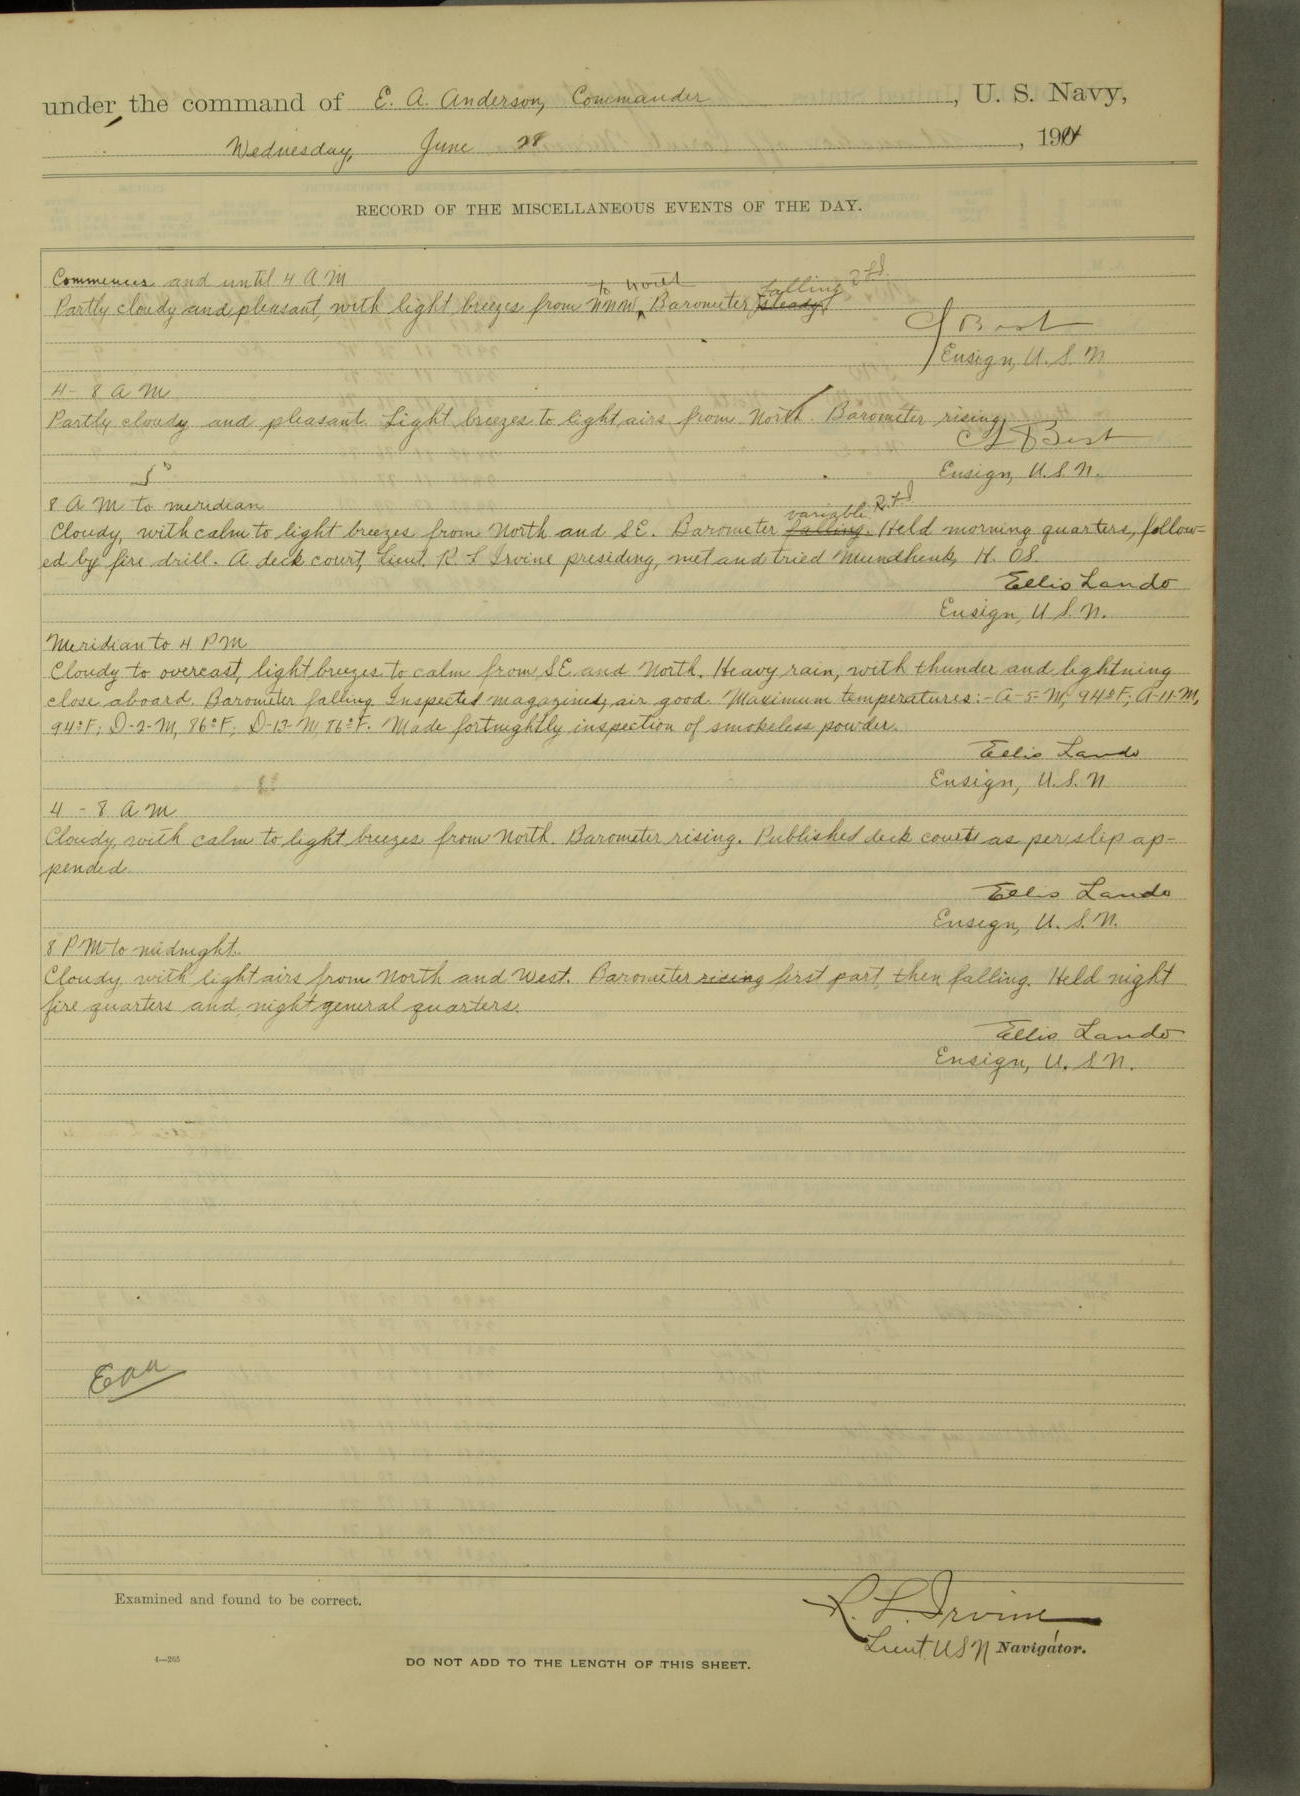 under the command of E. A. Anderson, Commander, U. S. Navy,
Wednesday, June 28, 1911
RECORD OF THE MISCELLANEOUS EVENTS OF THE DAY.
Commences and until 4 A M
to North falling
Partly cloudy and pleasant, with light breezes from NNW, Barometer steady.
C Best
Ensign, U. S. N
4 - 8 A M
Partly cloudy and pleasant. Light breezes to light airs from North. Barometer rising
C Best
Ensign, U. S. N.
8 A M to meridian
variable
Cloudy, with calm to light breezes from North and SE. Barometer falling. Held morning quarters, follow-
ed by fire drill. A deck court, Lieut. R. L Irvine presiding, met and tried Mundhenk, H. OS.
Ellis Lando
Ensign, U S. N.
Meridian to 4 P M
Cloudy to overcast, light breezes to calm from SE and North. Heavy rain, with thunder and lightning
close aboard. Barometer falling. Inspected magazines, air good. Maximum temperatures:- A-5-M, 94°F; A-11-M,
94°F; D-2-M, 86°F; D-12-M, 86°F. Made fortnightly inspection of smokeless powder.
Ellis Lando
Ensign, U. S. N
4 - 8 A M
Cloudy, with calm to light breezes from North. Barometer rising. Published deck court as per slip ap-
pended.
Ellis Lando
Ensign, U. S. N.
8 P M to midnight.
Cloudy with light airs from North and West. Barometer rising first part, then falling. Held night
fire quarters and night general quarters.
Ellis Lando
Ensign, U. S. N.
EAA
Examined and found to be correct.
R. L. Irvine
Lieut. U S N Navigator.
4—265
DO NOT ADD TO THE LENGTH OF THIS SHEET.